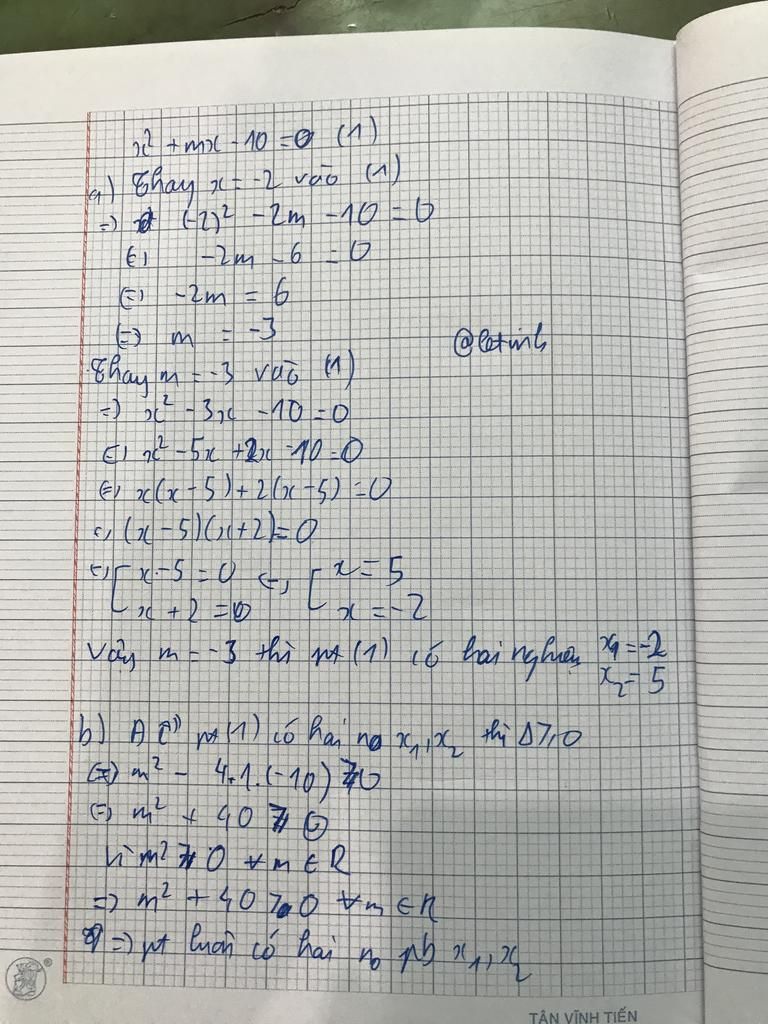 x² + mx - 10 = 0 (1)
a) Thay x = -2 vào (1)
=> (-2)² - 2m - 10 = 0
<=> -2m - 6 = 0
<=> -2m = 6
<=> m = -3
@letinh
Thay m = -3 vào (1)
=> x² - 3x - 10 = 0
<=> x² - 5x + 2x - 10 = 0
<=> x(x - 5) + 2(x - 5) = 0
<=> (x - 5)(x + 2) = 0
<=> [x - 5 = 0 <=> [x = 5
x + 2 = 0 x = -2
Vậy m = -3 thì pt (1) có hai nghiệm x₁ = -2
x₂ = 5
b) pt (1) có hai no x₁, x₂ thì Δ ≥ 0
<=> m² - 4.1.(-10) ≥ 0
<=> m² + 40 ≥ 0
Vì m² ≥ 0 ∀m ∈ R
=> m² + 40 > 0 ∀m ∈ R
=> pt luôn có hai no pb x₁, x₂
TÂN VĨNH TIẾN